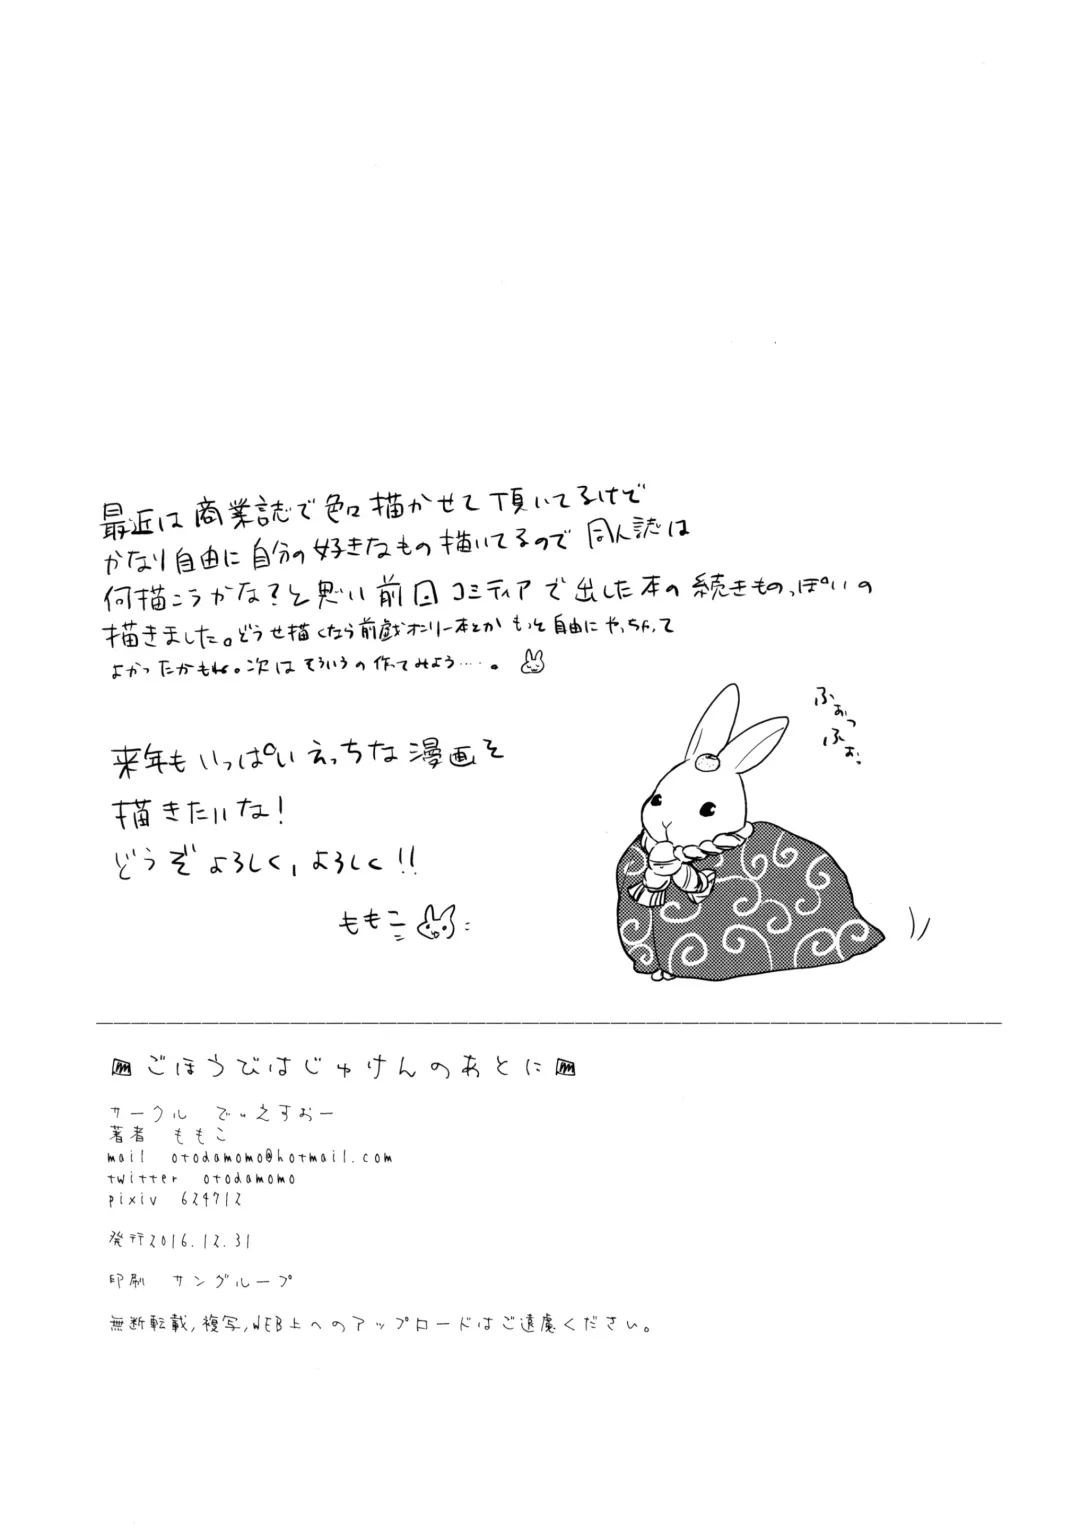 最近は商業誌で色々描かせて頂いてるけど
かなり自由に自分の好きなもの描いてるので同人誌は
何描こうかな?と思い前回コミティアで出した本の続きものっぽいの
描きました。どうせ描くなら前戯オンリー本とかもっと自由にやっちゃって
よかったかもね。次はそういうの作ってみよう……。
来年もいっぱいえっちな漫画を
描きたいな!
どうぞよろしく,よろしく!!
ももこ
ふぉっ
ふぉっ
ごほうびはじゅけんのあとに
サークル でぃえすおー
著者 ももこ
mail otodamomo@hotmail.com
twitter otodamomo
pixiv 624712
発行2016.12.31
印刷 サングループ
無断転載,複写,WEB上へのアップロードはご遠慮ください。